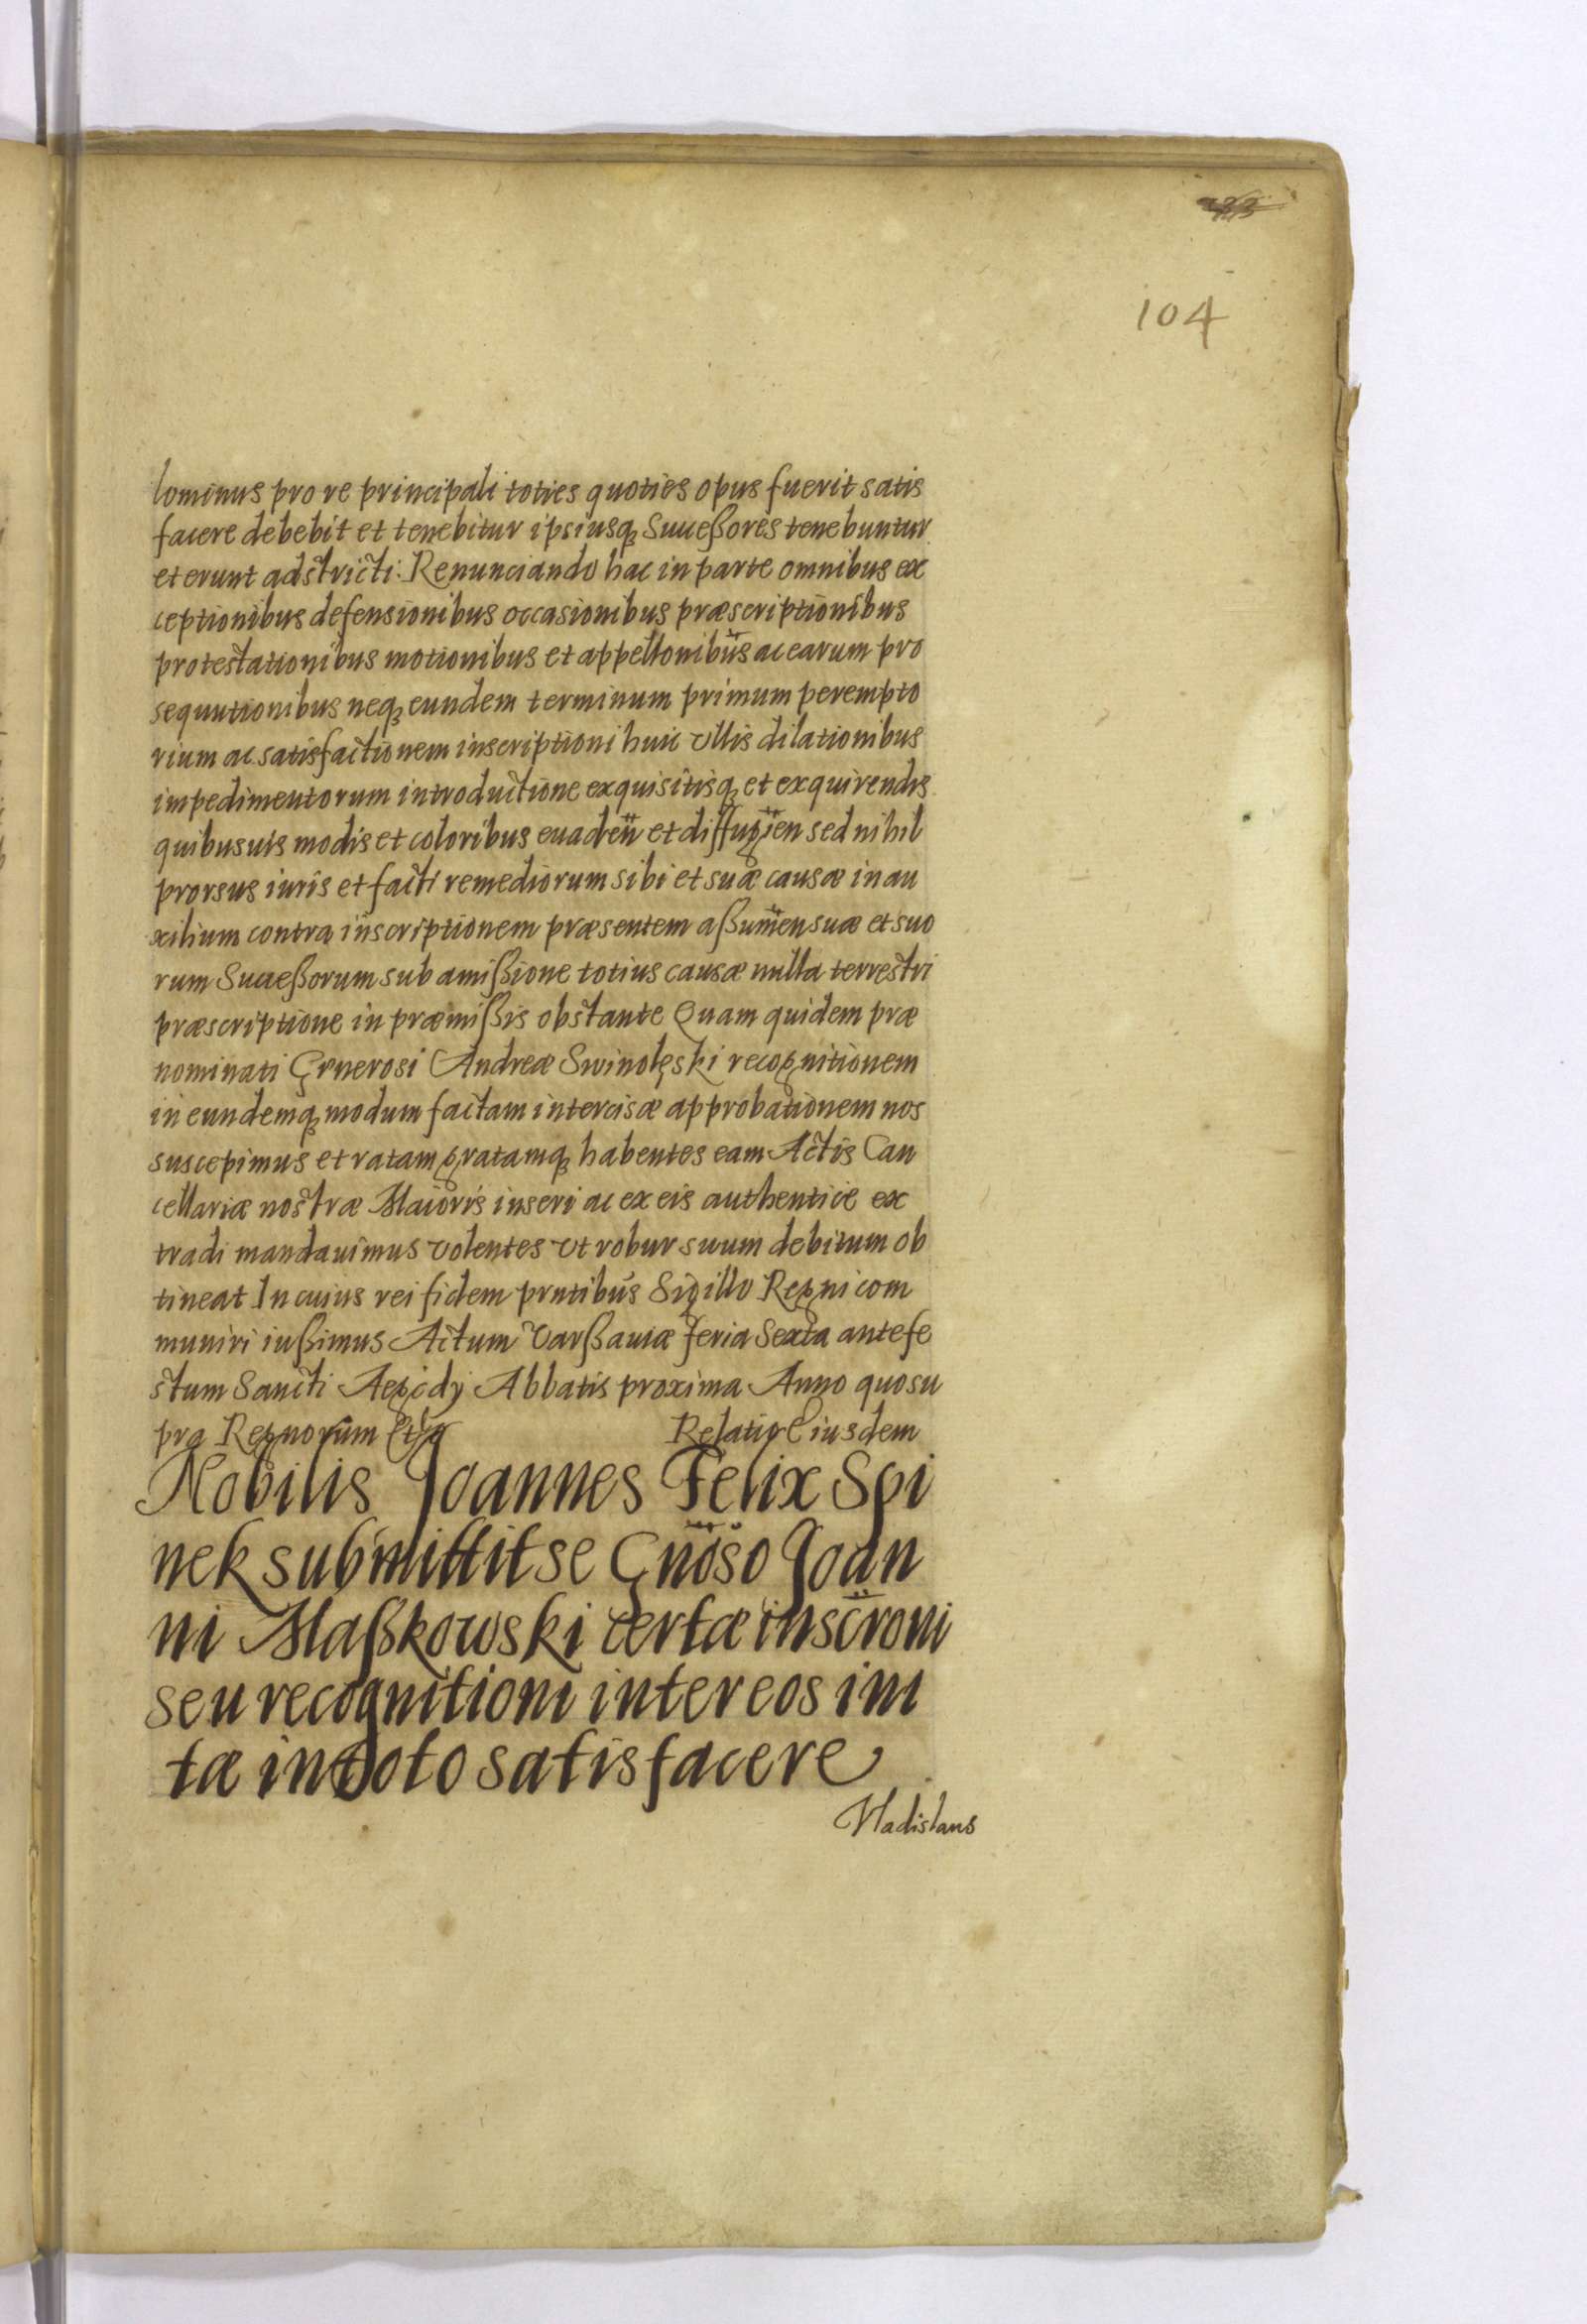 104
lominus pro re principali toties quoties opus fuerit satis
facere debebit et tenebitur ipsiusq Succeßores tenebuntur
et erunt adstricti: Renunciando hac in parte omnibus ex
ceptionibus defensionibus occasionibus præscriptionibus
protestationibus motionibus et appeltonibus ac earum pro
sequutionibus neq eundem terminum primum perempto
rium ac satisfactionem inscriptioni huic vllis dilationibus
impedimentorum introductione exquisitisq et exquirendis
quibusuis modis et coloribus euaden et diffugien sed nihil
prorsus iuris et facti remediorum sibi et suæ causæ in au
xilium contra inscriptionem præsentem aßumen suæ et suo
rum Succeßorum sub amißione totius causæ nulla terrestri
præscriptione in præmißis obstante Quam quidem præ
nominati Generosi Andreæ Swinolęski recognitionem
in eundemq modum factam intercisæ approbationem nos
suscepimus et ratam gratamq habentes eam Actis Can
cellariæ nostræ Maioris inseri ac ex eis authentice ex
tradi mandauimus volentes vt robur suum debitum ob
tineat In cuius rei fidem prntibus Sigillo Regni com
muniri iußimus Actum Varßauiæ feria Sexta ante fe
stum Sancti Aegidy Abbatis proxima Anno quo su
pra Regnorum Etc Relatio Eiusdem
Nobilis Joannes Felix Spi
nek submittit se Gnoso Joan
ni Maßkowski certæ inscroni
seu recognitioni inter eos ini
tæ in toto satisfacere
Vladislaus